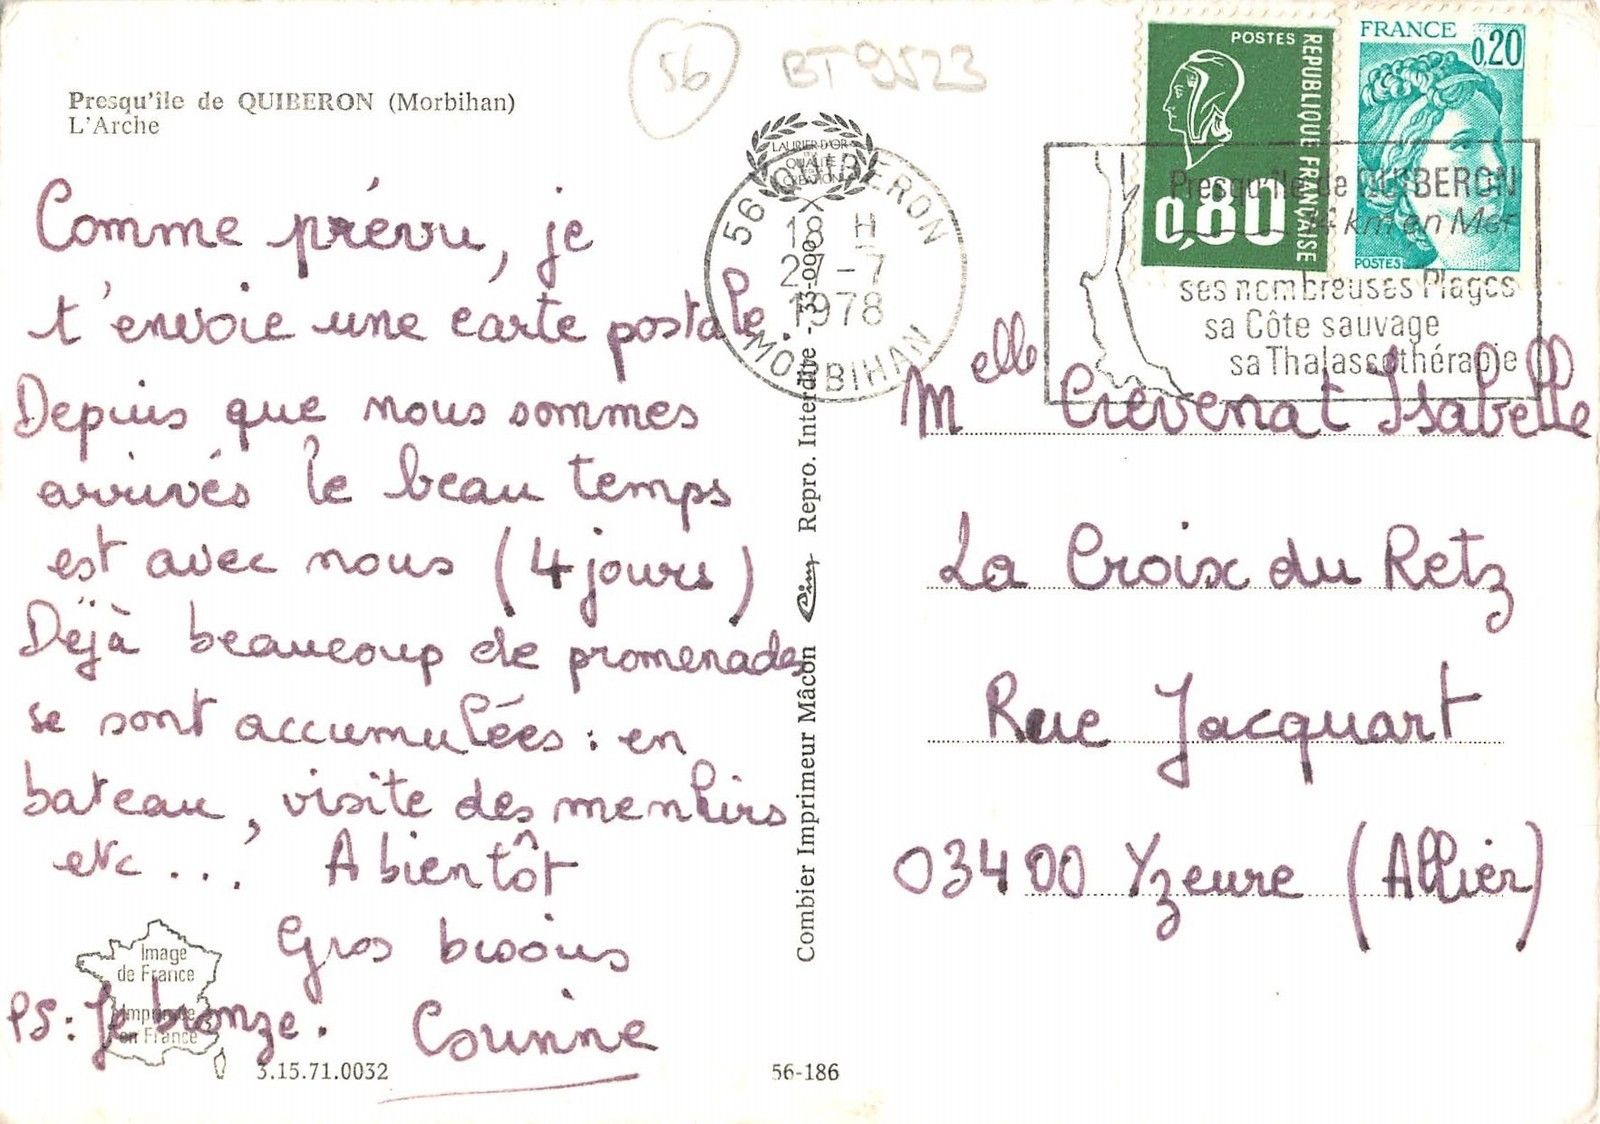 56
BT 9523
Presqu'île de QUIBERON (Morbihan)
L'Arche
Comme prévu, je
t'envoie une carte postale.
Depuis que nous sommes
arrivés le beau temps
est avec nous (4 jours)
Déjà beaucoup de promenades
se sont accumulées : en
bateau, visite des menhirs
etc ... A bientôt
Gros bisous
PS : Je bronze. Corinne
Image
de France
Imprimée
en France
3.15.71.0032
56-186
Combier Imprimeur Mâcon Cim Repro. Interdite - 33-090
LAURIER D'OR
QUALITÉ
CRÉATION
56 QUIBERON
18 H
27-7
1978
MORBIHAN
POSTES
REPUBLIQUE FRANÇAISE
0,80
FRANCE
0,20
POSTES
Presqu'île de QUIBERON
km en Mer
ses nombreuses Plages
sa Côte sauvage
sa Thalassothérapie
Melle Crevenat Isabelle
La Croix du Retz
Rue Jacquart
03400 Yzeure (Allier)